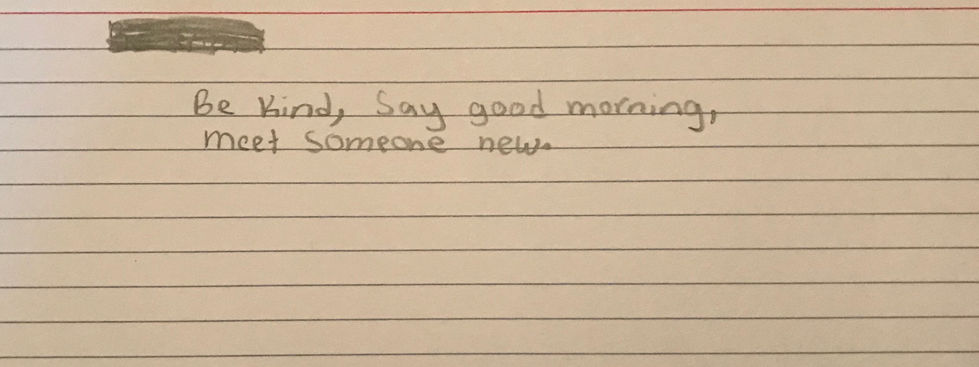 Be Kind, Say good morning,
meet Someone new.